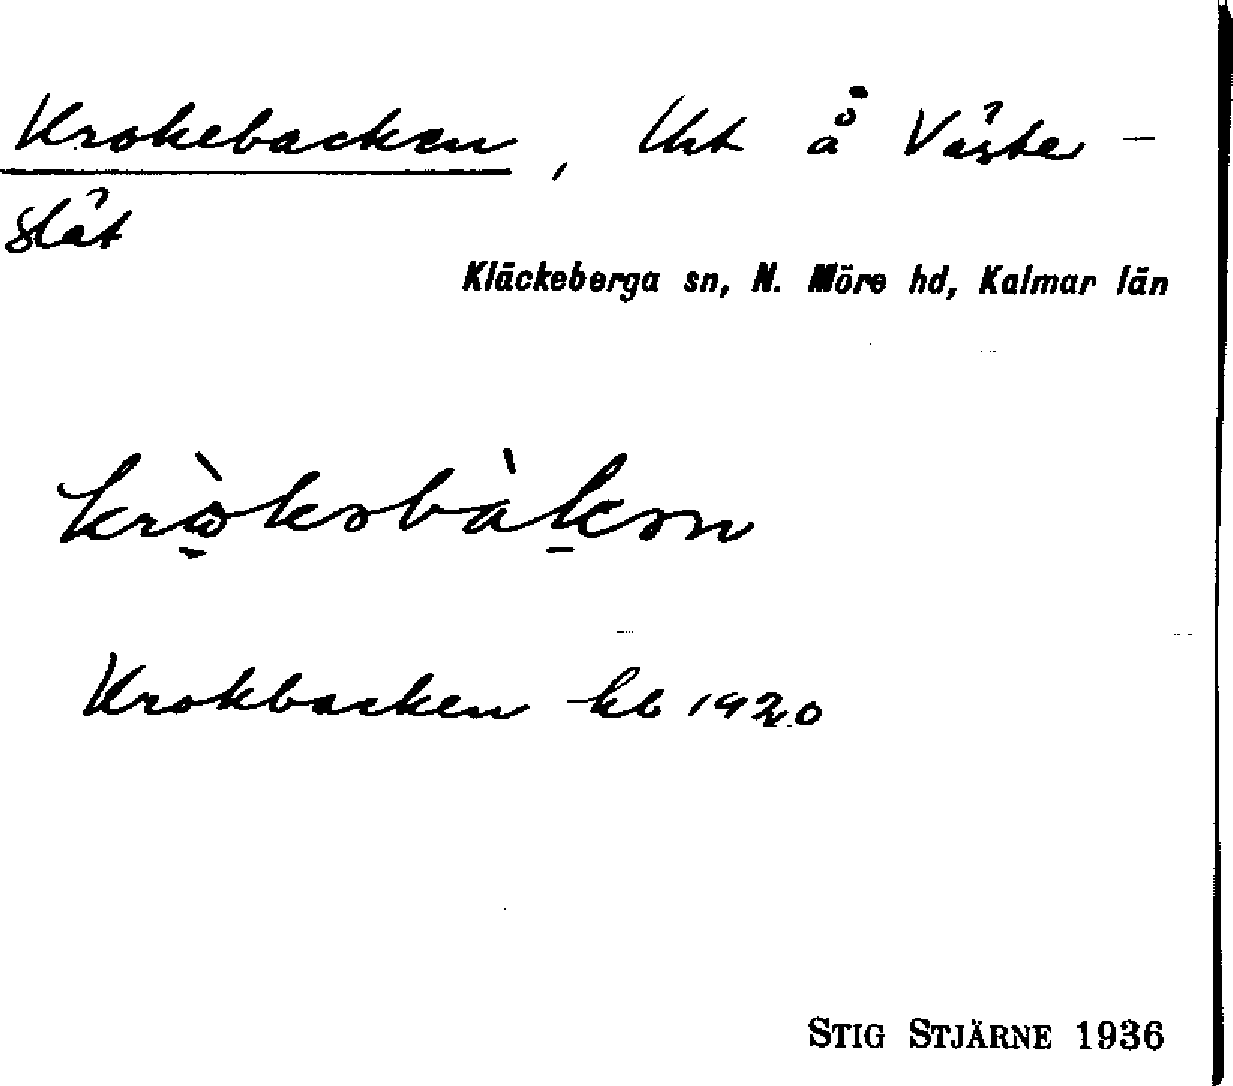 Krokebacken, Uht å Väster-
slät
Kläckeberga sn, N. Möre hd, Kalmar län
Krokbacken hb 1920
STIG STJÄRNE 1936